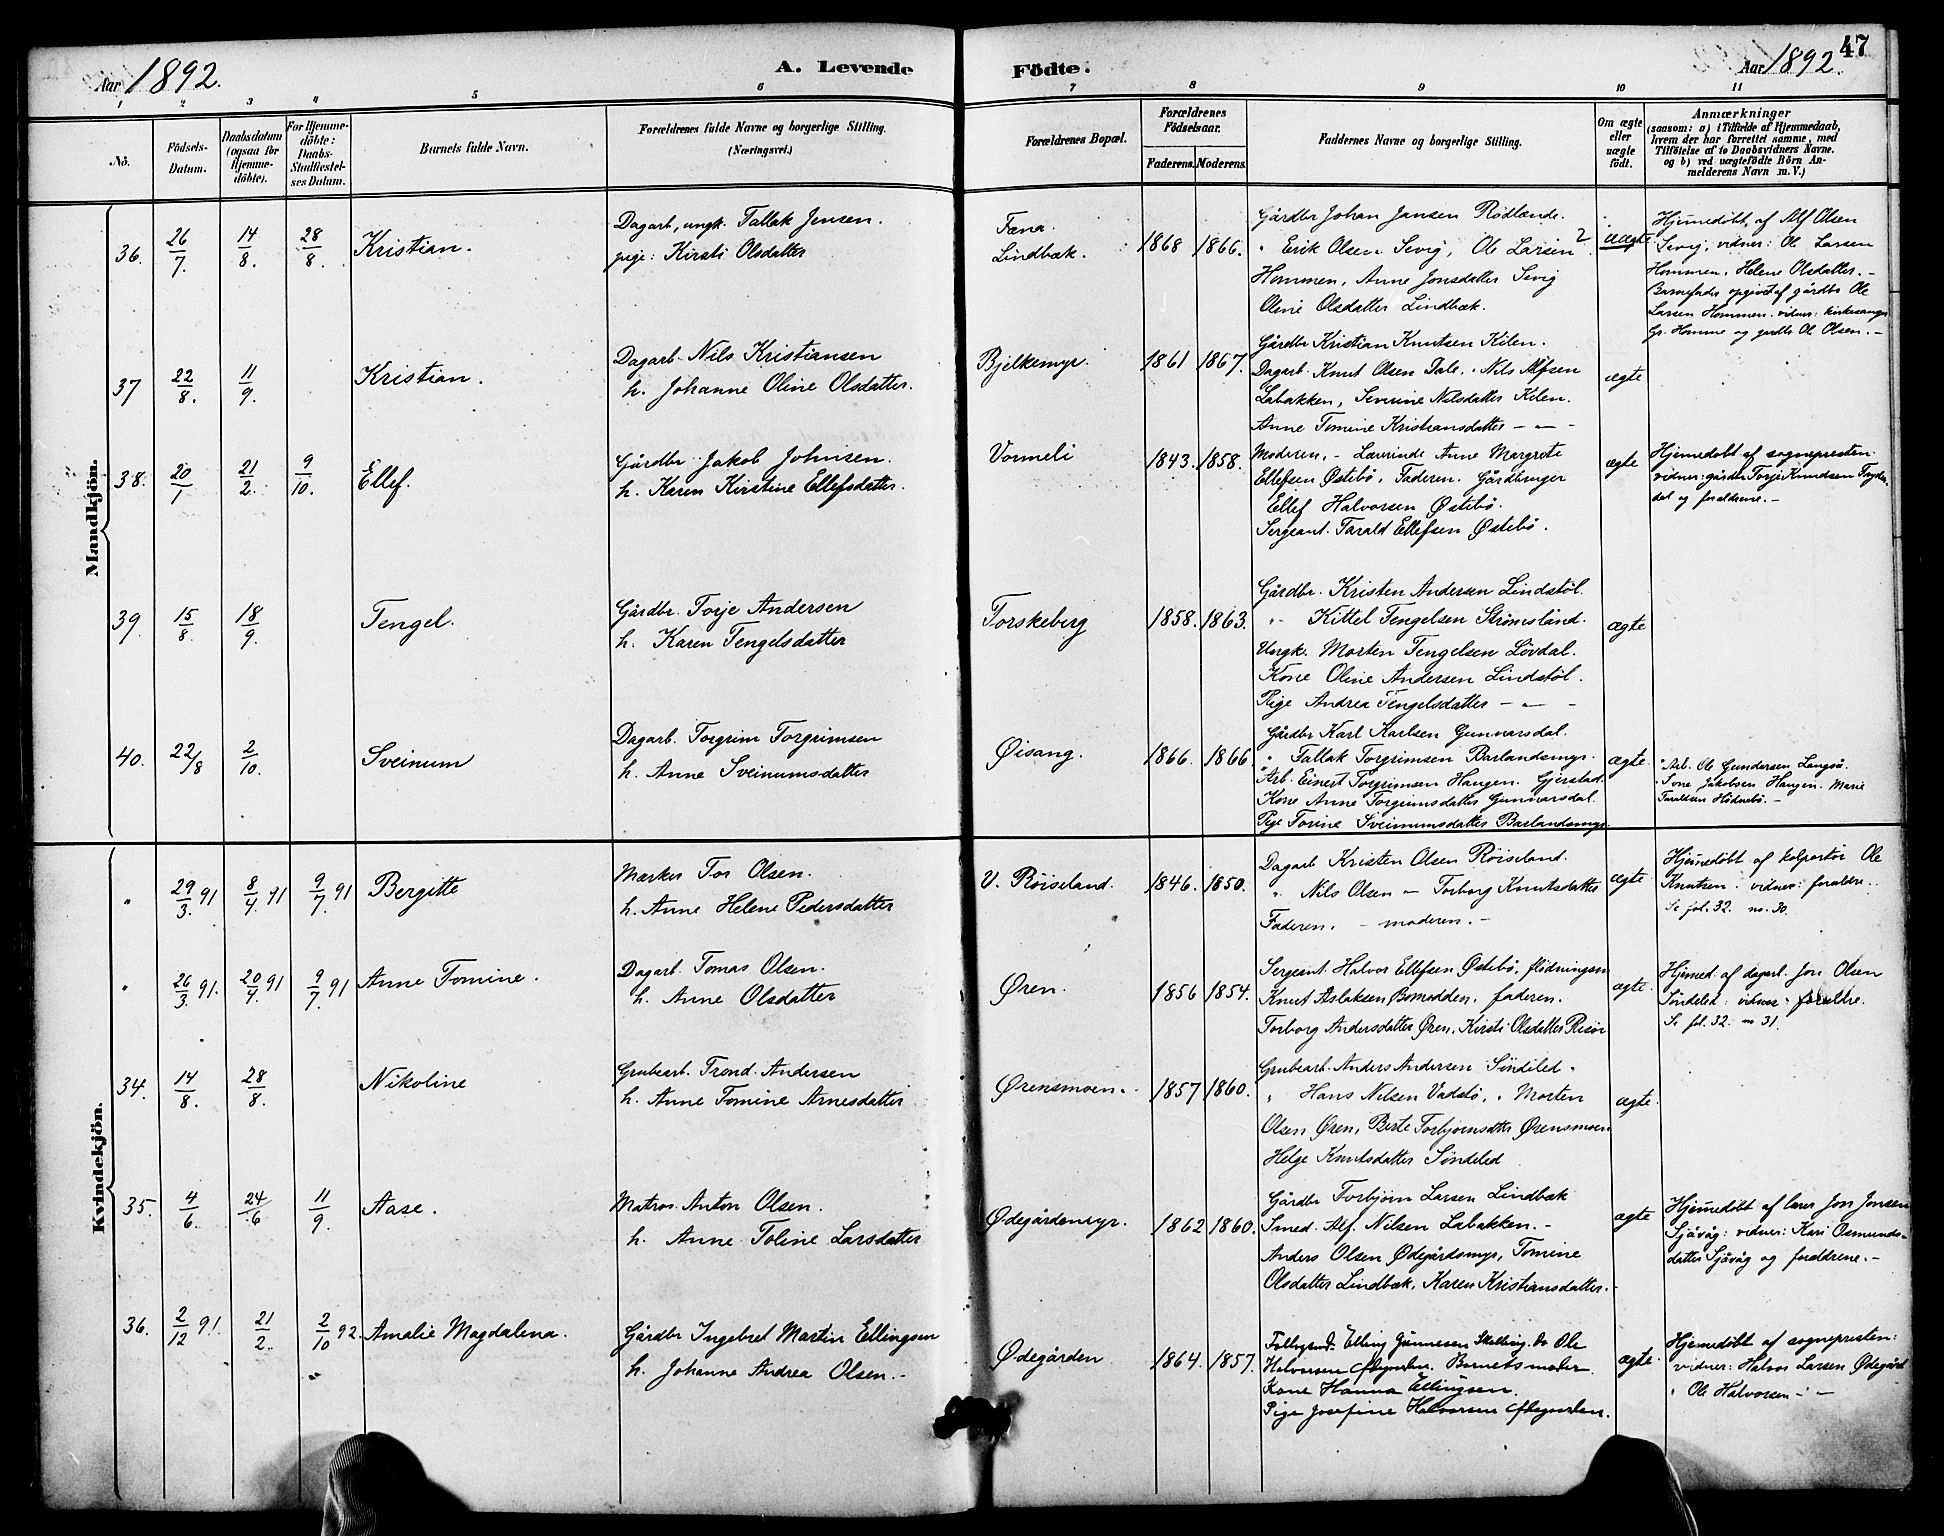 Aar 1892.
A. Levende
Födte.
Aar 1892.
47
1 2 3 4 5 6 7 8 9 10 11
No.
Födsels-Datum.
Daabsdatum (ogsaa for Hjemme-döbte).
For Hjemme-döbte: Daabs-Stadfæstel-ses Datum.
Barnets fulde Navn.
Forældrenes fulde Navne og borgerlige Stilling.
(Næringsvei.)
Forældrenes Bopæl.
Forældrenes Födselsaar.
Faderens. Moderens.
Faddernes Navne og borgerlige Stilling.
Om ægte eller uægte födt.
Anmærkninger
(saasom: a) i Tilfælde af Hjemmedaab,
hvem der har forrettet samme, med
Tilföielse af to Daabsvidners Navne.
og b) ved uægtefödte Börn An-
melderens Navn m. V.)
Mandkjön.
36. 26/7. 14/8. 28/8. Kristian.
Dagarb, ungk. Tallak Jensen.
pige: Kirsti Olsdatter
Fæna.
Lindbæk.
1868 1866.
Gårdbr Johan Jansen Rødlande.
" Erik Olsen Sevig, Ole Larsen
Hommen, Anne Jonsdatter Sevig
Oline Olsdatter Lindbæk.
uægte
Hjemmedøbt af Alf Olsen
Sevig, vidner: Ole Larsen
Hommen, Helene Olsdatter. -
Barnefader opgivet af gårdbr Ole
Larsen Hommen. vidner: kirkesanger
Gr. Homme og gardb Ol Olsen. -
37 22/8. 11/9. Kristian.
Dagarb. Nils Kristiansen
h. Johanne Oline Olsdatter.
Bjelkemyr.
1861 1867.
Gårdbr Kristian Knutsen Kilen.
Dagarb. Knut Olsen Dale. " Nils Alfsen
Labakken, Severine Nilsdatter Kilen.
Anne Tomine Kristiansdatter - " -
ægte
38. 20/1 21/2. 9/10. Ellef.
Gårdbr. Jakob Johnsen.
h. Karen Kirstine Ellefsdatter.
Vormeli
1843. 1858.
Moderen. - Lærerinde Anne Margrete
Ellefsen Østebö, Faderen. Gårdbruger
Ellef Halvorsen Østebö.
Sergeant. Tarald Ellefsen Østebö.
ægte
Hjemedøbt af sognepresten.
vidner: gårdbr Torje Knudsen
og foraldrene. -
39. 15/8. 18/9. Tengel.
Gårdbr. Torje Andersen
h. Karen Tengelsdatter
Torskeberg
1858. 1863.
Gårdbr. Kristen Andersen Lindstöl.
" Kittel Tengelsen Strömsland.
Ungk. Morten Tengelsen Lövdal.
Kone Oline Andersen Lindstöl.
Pige Andrea Tengelsdatter - " -
ægte
40. 22/8 2/10. Sveinum
Dagarb. Torgrim Torgrimsen
h. Anne Sveinumsdatter
Øisang.
1866. 1866
Gårdbr Karl Karlsen Gunnarsdal.
" Tallak Torgrimsen Barlandsmyr.
Arb. Einert Torgrimsen Haugen. Gjerstad.
Kone Anne Torgrimsdatter Gunnarsdal.
Pige Torine Sveinumsdatter Barlandsmyr.
ægte.
" Arb. Ole Gundersen Langsö.
" Tone Jakobsen Haugen. Marie
Taraldsen Hödnebö. -
Kvindekjön.
" 29/3. 91 8/4. 91 9/7 91 Bergitte
Mærker Tor Olsen.
h. Anne Helene Pedersdatter
V. Röiseland.
1846. 1850.
Dagarb Kristen Olsen Röiseland.
" Nils Olsen - Torborg Knutsdatter
Faderen. - moderen. -
ægte
Hjemedøbt af kolportör Ole
Knutsen. vidner: foraldre.
Se fol. 32. no. 30.
" 26/3 91. 20/4. 91 9/7 91 Anne Tomine.
Dagarb. Tomas Olsen.
h. Anne Olsdatter
Øren.
1856 1854.
Sergeant. Halvor Ellefsen Østebö, flödningsm
Knut Aslaksen Bomodden, faderen.
Torborg Andersdatter Øren. Kirsti Olsdatter Risör
ægte.
Hjemed. af dagarb. Jon Olsen
Söndeled: vidner: foraldre.
Se fol. 32. no 31.
34. 14/8. 28/8. Nikoline
Grubearb. Trond. Andersen
h. Anne Tomine Arnesdatter
Ørensmoen.
1857 1860.
Grubearb. Anders Andersen Söndeled.
" Hans Nilsen Vadstö, " Morten
Olsen Øren, Berte Torbjörnsdatter Ørensmoen
Helge Knutsdatter Söndeled
ægte.
35. 4/6. 24/6. 11/9. Aase.
Matros. Anton Olsen.
h. Anne Toline Larsdatter
Ødegårdsmyr.
1862 1860.
Gårdbr Torbjörn Larsen Lindbæk
Smed. Alf. Nilsen Labakken. -
Anders Olsen Ødegårdsmyr, Tomine
Olsdatter Lindbæk, Karen Kristiansdatter. -
ægte
Hjemedøbt af lærer Jon Jonsen
Sjåvåg: vidner: Kari Osmunds-
datter Sjåvåg og foraldrene. -
36. 2/12 91. 21/2. 2/10 92. Amalie Magdalena.
Gårdbr Ingebret Martin Ellingsen
h. Johanne Andrea Olsen. -
Ødegården
1864. 1857.
Elling Gunnesen Do Ole
Halvorsen Barnets moder
Kone Hanna Ellingsen.
Pige Josefine Halvorsen
ægte.
Hjemedøbt af sognepresten:
vidner: Halvor Larsen Ødegård
" Ole Halvorsen - " -